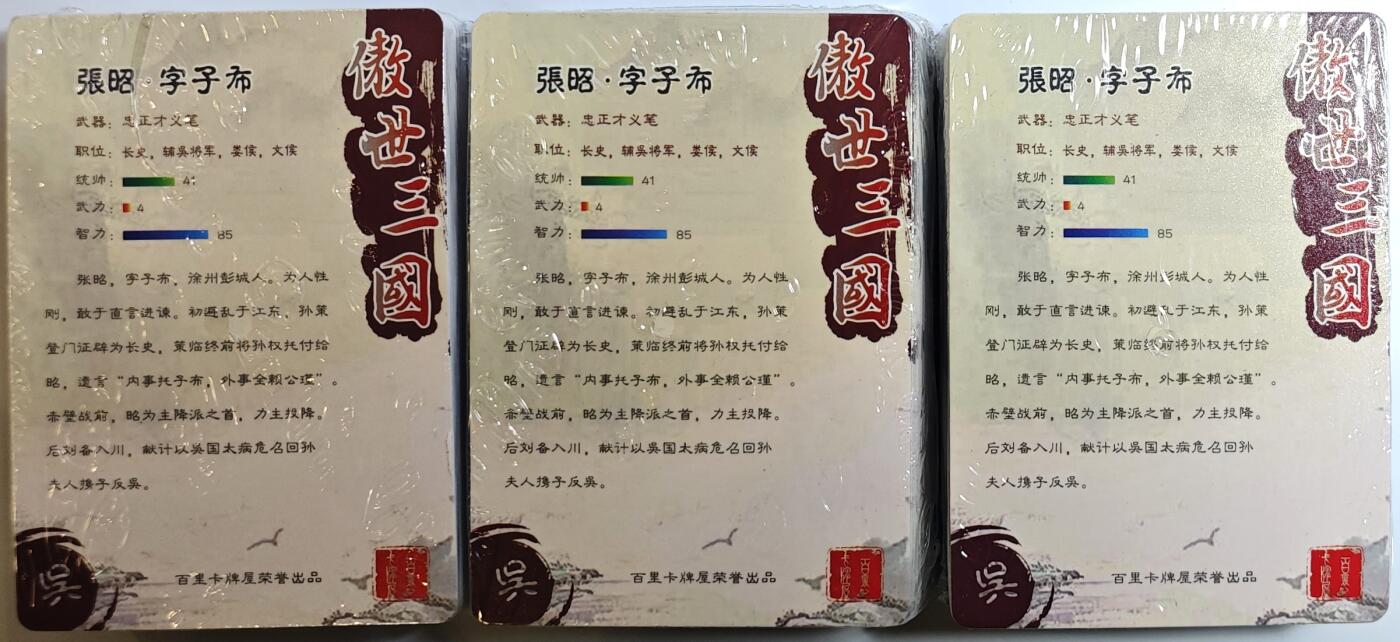 張昭·字子布
武器：忠正才义笔
职位：长史，辅吳将军，娄侯，文侯
统帅：41
武力：4
智力：85
张昭，字子布，徐州彭城人。为人性
刚，敢于直言进谏。初避乱于江东，孙策
登门征辟为长史，策临终前将孙权托付给
昭，遗言“内事托子布，外事全赖公瑾”。
赤壁战前，昭为主降派之首，力主投降。
后刘备入川，献计以吳国太病危召回孙
夫人携子反吳。
傲世三國
吳
百里卡牌屋荣誉出品
百里卡牌屋
張昭·字子布
武器：忠正才义笔
职位：长史，辅吳将军，娄侯，文侯
统帅：41
武力：4
智力：85
张昭，字子布，徐州彭城人。为人性
刚，敢于直言进谏。初避乱于江东，孙策
登门征辟为长史，策临终前将孙权托付给
昭，遗言“内事托子布，外事全赖公瑾”。
赤壁战前，昭为主降派之首，力主投降。
后刘备入川，献计以吳国太病危召回孙
夫人携子反吳。
傲世三國
吳
百里卡牌屋荣誉出品
百里卡牌屋
張昭·字子布
武器：忠正才义笔
职位：长史，辅吳将军，娄侯，文侯
统帅：41
武力：4
智力：85
张昭，字子布，徐州彭城人。为人性
刚，敢于直言进谏。初避乱于江东，孙策
登门征辟为长史，策临终前将孙权托付给
昭，遗言“内事托子布，外事全赖公瑾”。
赤壁战前，昭为主降派之首，力主投降。
后刘备入川，献计以吳国太病危召回孙
夫人携子反吳。
傲世三國
吳
百里卡牌屋荣誉出品
百里卡牌屋